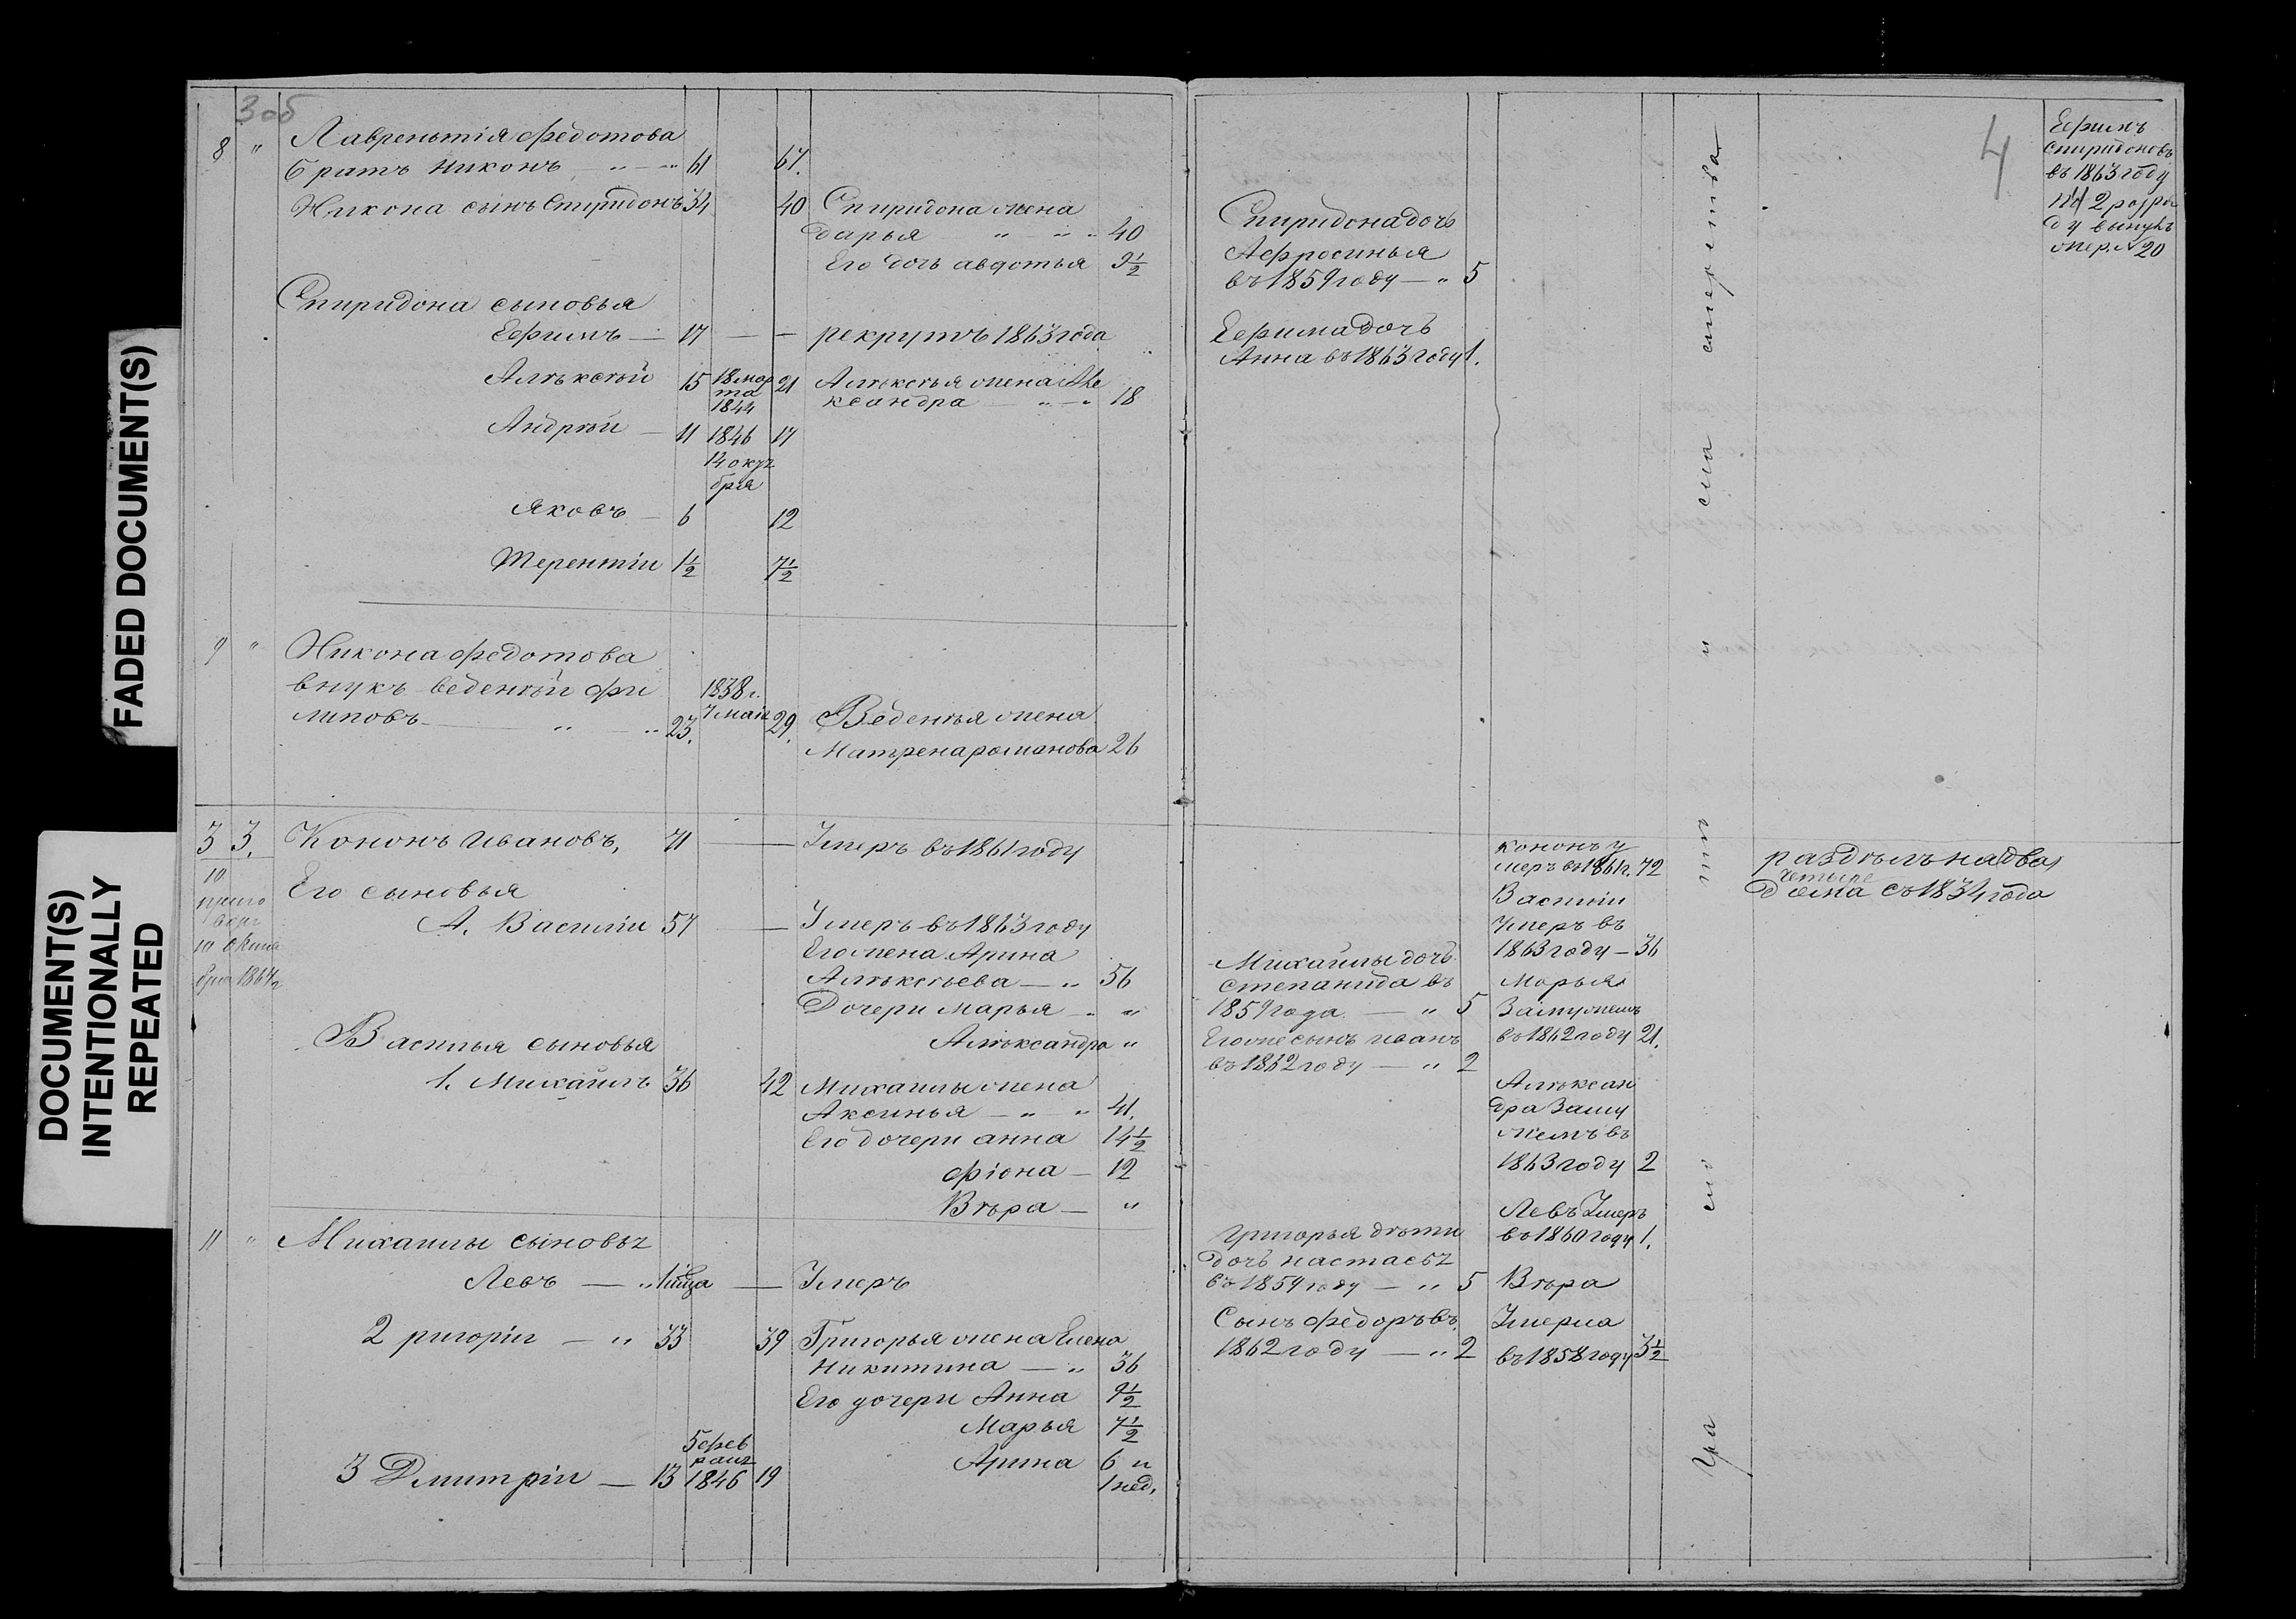 FADED DOCUMENT(S)
DOCUMENT(S)
INTENTIONALLY
REPEATED
3 об
8 " Лавреньтія федотова
братъ Никонъ " — " 61 67.
Никона сынъ Спиридонъ 34 40 Спиридона жена
Дарья " — " " 40
Его дочь авдотья 9½
Спиридона сыновья
Ефимъ — 17 — — рекрутъ 1863 года
Алѣксѣй 15 18 мар 21 Алѣксѣя жена Але
та ксандра — " — " 18
1844
Андрѣй — 11 1846 17
14 октя
бря
Яковъ — 6 12
Терентіи 1½ 7½
9 " Никона федотова
внукъ веденѣй фи 1838 г.
липовъ — " — " 23. 7 маія 29. Веденѣя жена
Матрена романова 26
3 3. Кононъ ивановъ, 71 — Умеръ въ 1861 году
10
приго
воръ
10 октя
бря 1864 г
Его сыновья
А. Василіи 57 — Умеръ въ 1863 году
Его жена Арина
Алѣксѣева — " 56
Дочери марья — " "
Алѣксандра "
Василья сыновья
1. Михайлъ 36 42 Михаилы жена
Аксинья — " — " 41.
Его дочери анна 14½
фіона — 12
Вѣра — "
11 " Михаилы сыновья
Левъ — " — Умеръ
2 ригоріи — " 33 39 Григорья жена Елена
Никитина — " 36
Его дочери Анна 9½
Марья 7½
Арина 6 и
1 нед.
5 фев
раля
3 Дмитріи — 13 1846 19
4
Спиридона дочь
Афросинья
въ 1859 году — " 5
Ефима дочь
Анна въ 1863 году 1.
Михайлы дочь
степанида въ
1859 года — " 5
Его же сынъ иванъ
въ 1862 году — " 2
григорья дѣти
дочь настасья
въ 1859 году — " 5
Сынъ федоръ въ
1862 году — " 2
кононъ у
меръ въ 1861 г. 72
Василіи
Умеръ въ
1863 году — 36
Марья
Замужемъ
въ 1862 году 21.
Алѣксан
дра Заму
жемъ въ
1863 году 2
Левъ Умеръ
въ 1860 году 1.
Вѣра
Умерла
въ 1858 году 3½
раздѣлъ на два
четыре
дома съ 1834 года
Ефимъ
спиридоновъ
въ 1863 году